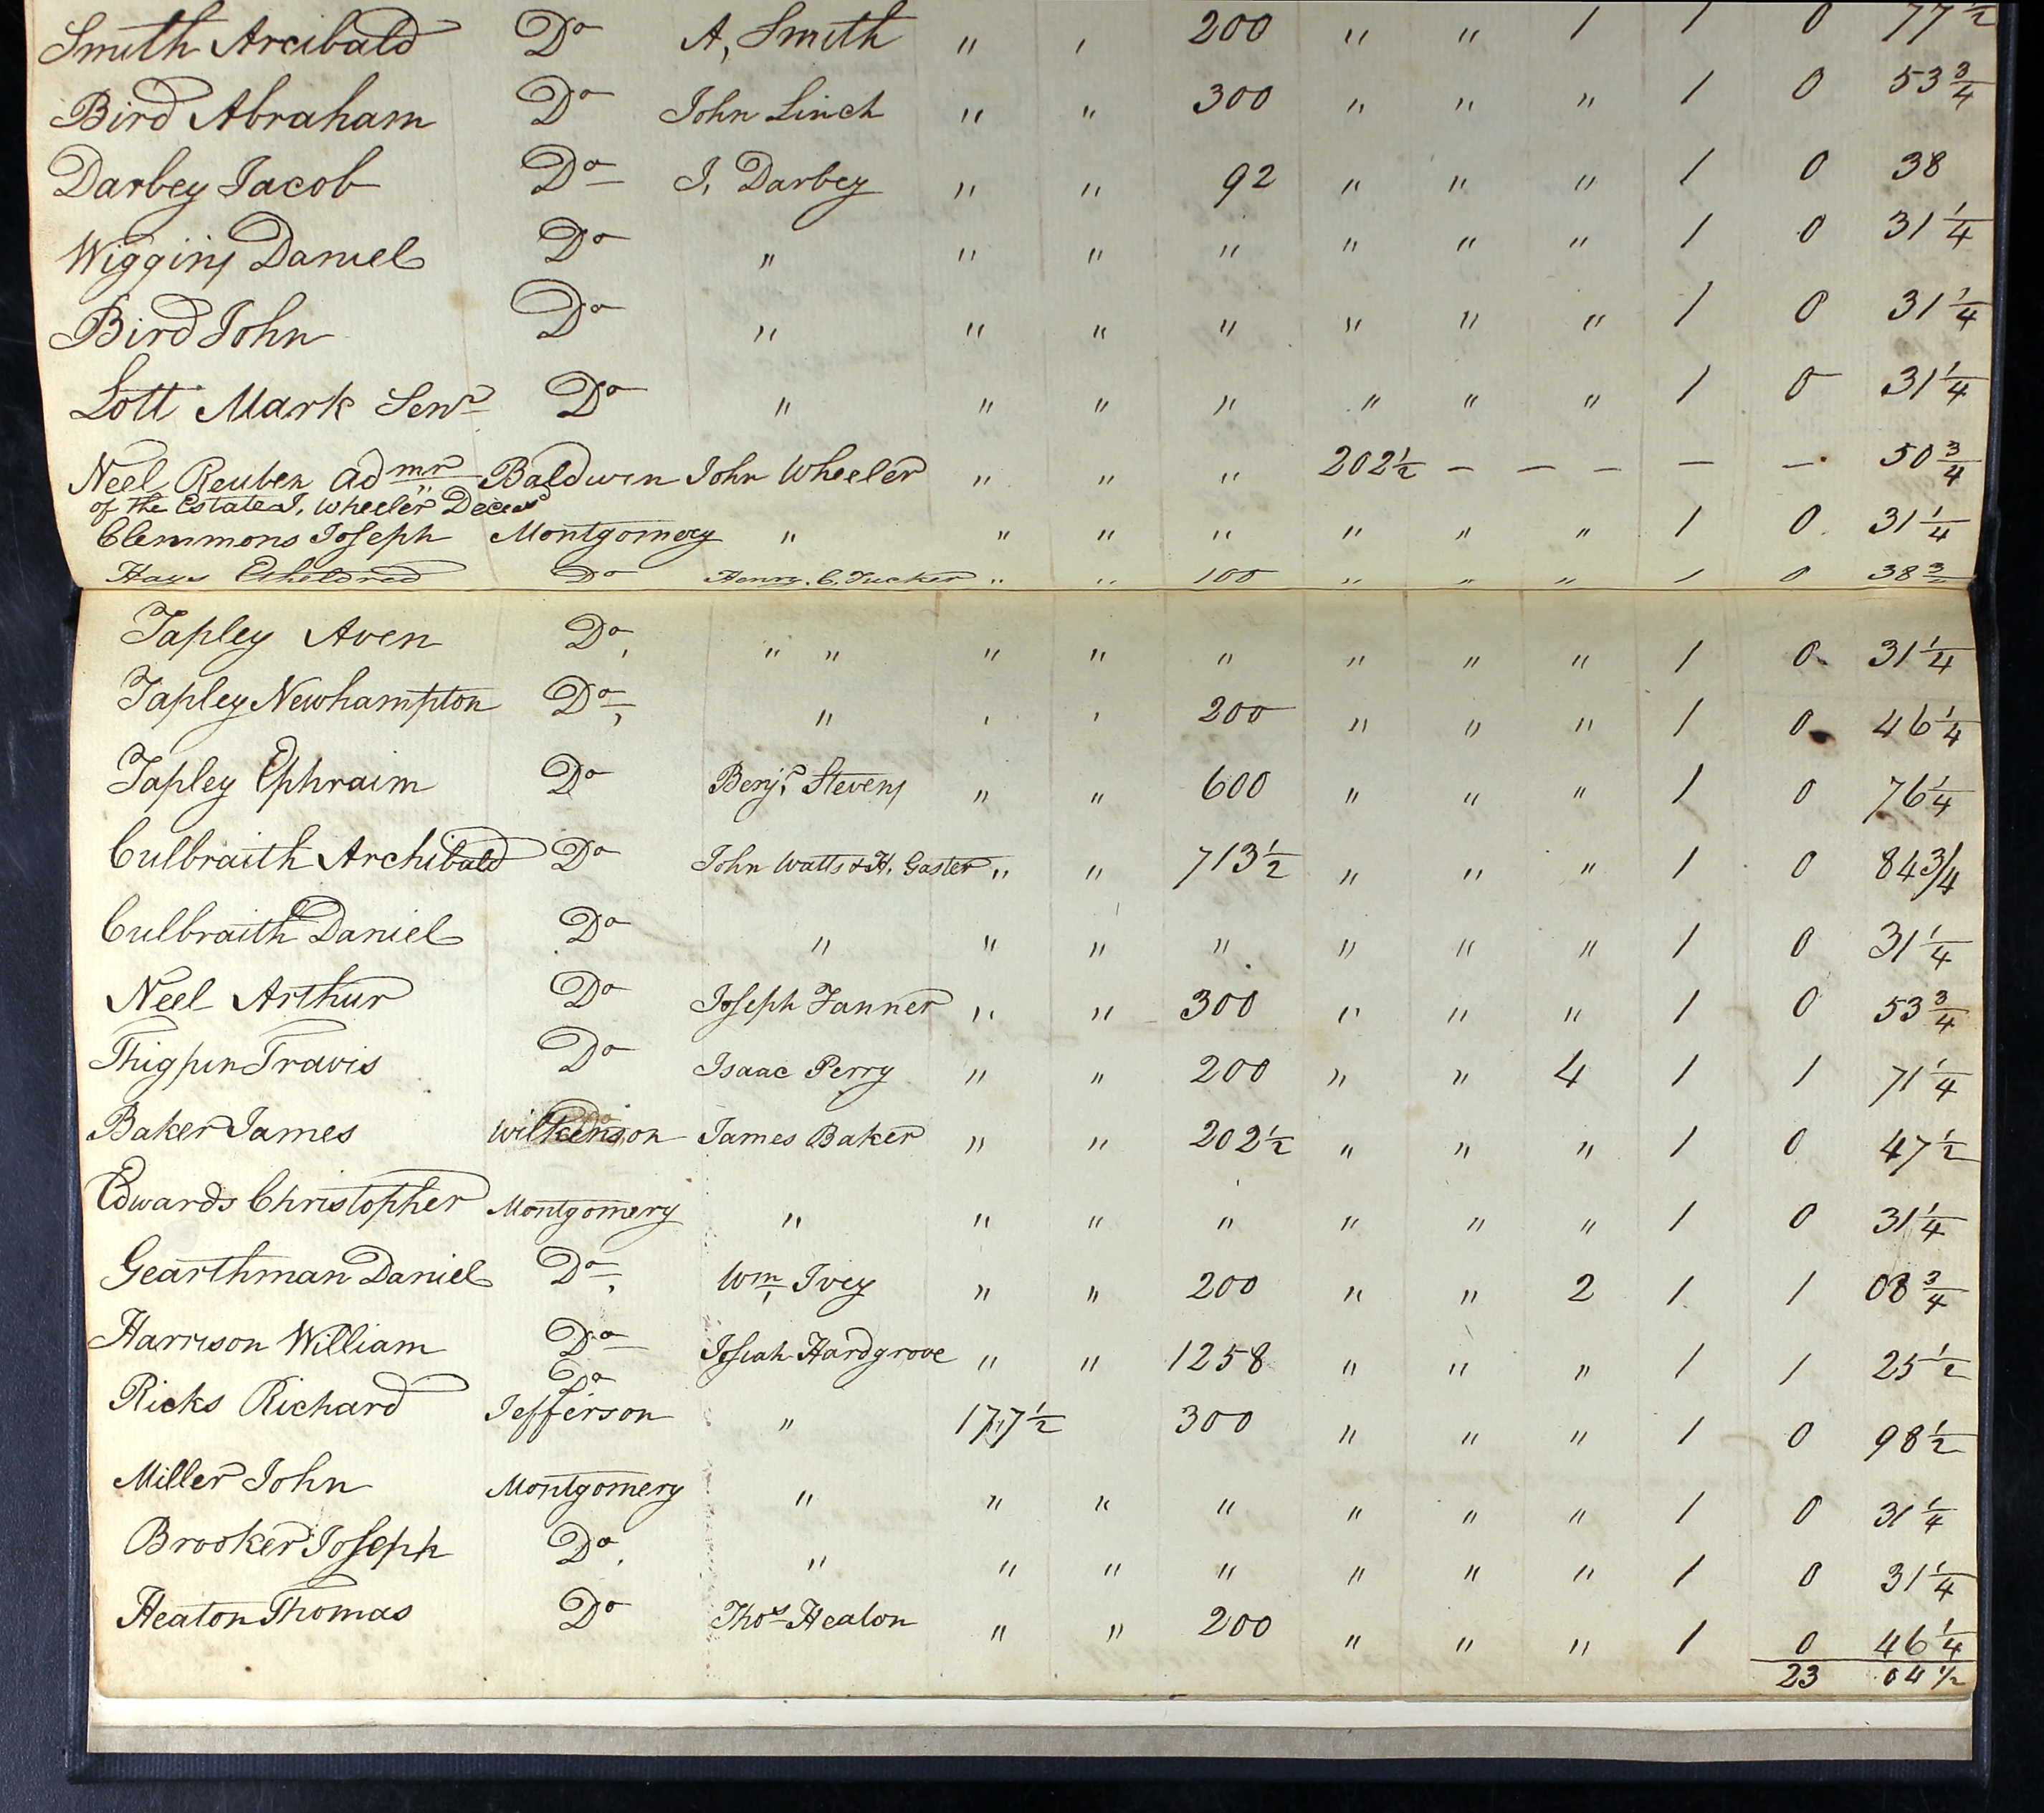 Smith Arcibald Do A, Smith " , 200 " " 1 1 0 77 1/2
Bird Abraham Do John Linch " " 300 " " " 1 0 53 3/4
Darbey Jacob Do J, Darbey " " 92 " " " 1 0 38
Wiggins Daniel Do " " " " " " " 1 0 31 1/4
Bird John Do " " " " " " " 1 0 31 1/4
Lott Mark Senr Do " " " " " " " 1 0 31 1/4
Neel Reuben admr Baldwin John Wheeler " " " 202 1/2 — — — — — 50 3/4
of the Estate J, Wheeler Decesd
Clemmons Joseph Montgomery " " " " " " " 1 0 31 1/4
Hays Etheldred Do Henry C, Tucker " " 100 " " " 1 0 38 3/4
Tapley Aven Do, " " " " " " " " 1 0 31 1/4
Tapley Newhampton Do, " , , 200 " " " 1 0 46 1/4
Tapley Ephraim Do Benjn, Stevens " " 600 " " " 1 0 76 1/4
Culbraith Archibald Do John Watts & H, Gaster " " 713 1/2 " " " 1 0 84 3/4
Culbraith Daniel Do " " " " " " " 1 0 31 1/4
Neel Arthur Do Joseph Tanner " " 300 " " " 1 0 53 3/4
Thigpin Travis Do Isaac Perry " " 200 " " 4 1 1 71 1/4
Baker James Wilkinson James Baker " " 202 1/2 " " " 1 0 47 1/2
Edwards Christopher Montgomery " " " " " " " 1 0 31 1/4
Gearthman Daniel Do, Wm, Ivey " " 200 " " 2 1 1 08 3/4
Harrison William Do Josiah Hardgrove " " 1258 " " " 1 1 25 1/2
Do
Ricks Richard Jefferson " 177 1/2 300 " " " 1 0 98 1/2
Miller John Montgomery " " " " " " " 1 0 31 1/4
Brooker Joseph Do, " " " " " " " 1 0 31 1/4
Heaton Thomas Do Thos Heaton " " 200 " " " 1 0 46 1/4
23 04 1/2